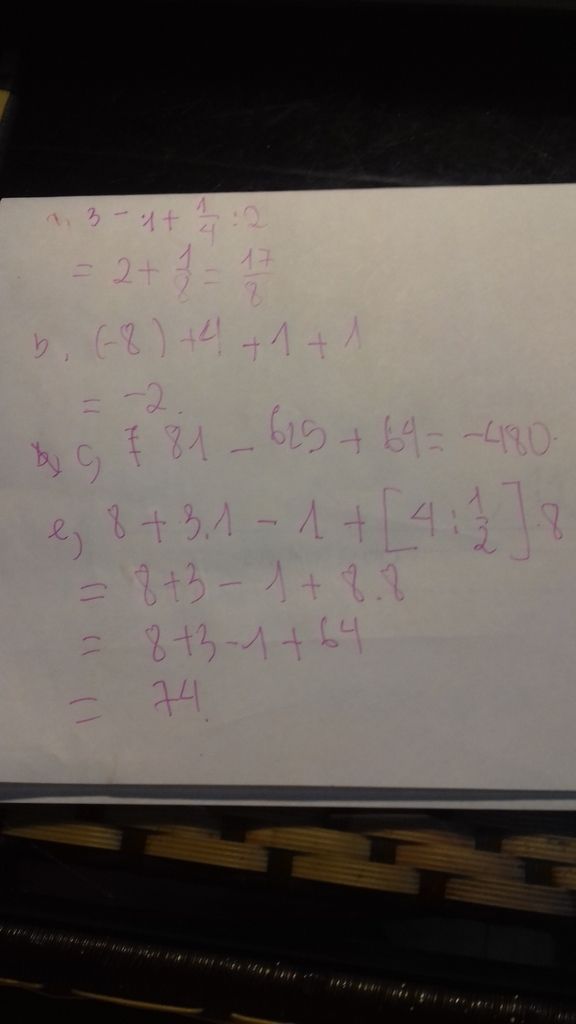 a, 3 - 1 + 1/4 : 2
= 2 + 1/8 = 17/8
b, (-8) + 4 + 1 + 1
= -2.
c, 81 - 625 + 64 = -480.
e, 8 + 3.1 - 1 + [4 : 1/2] . 8
= 8 + 3 - 1 + 8.8
= 8 + 3 - 1 + 64
= 74.